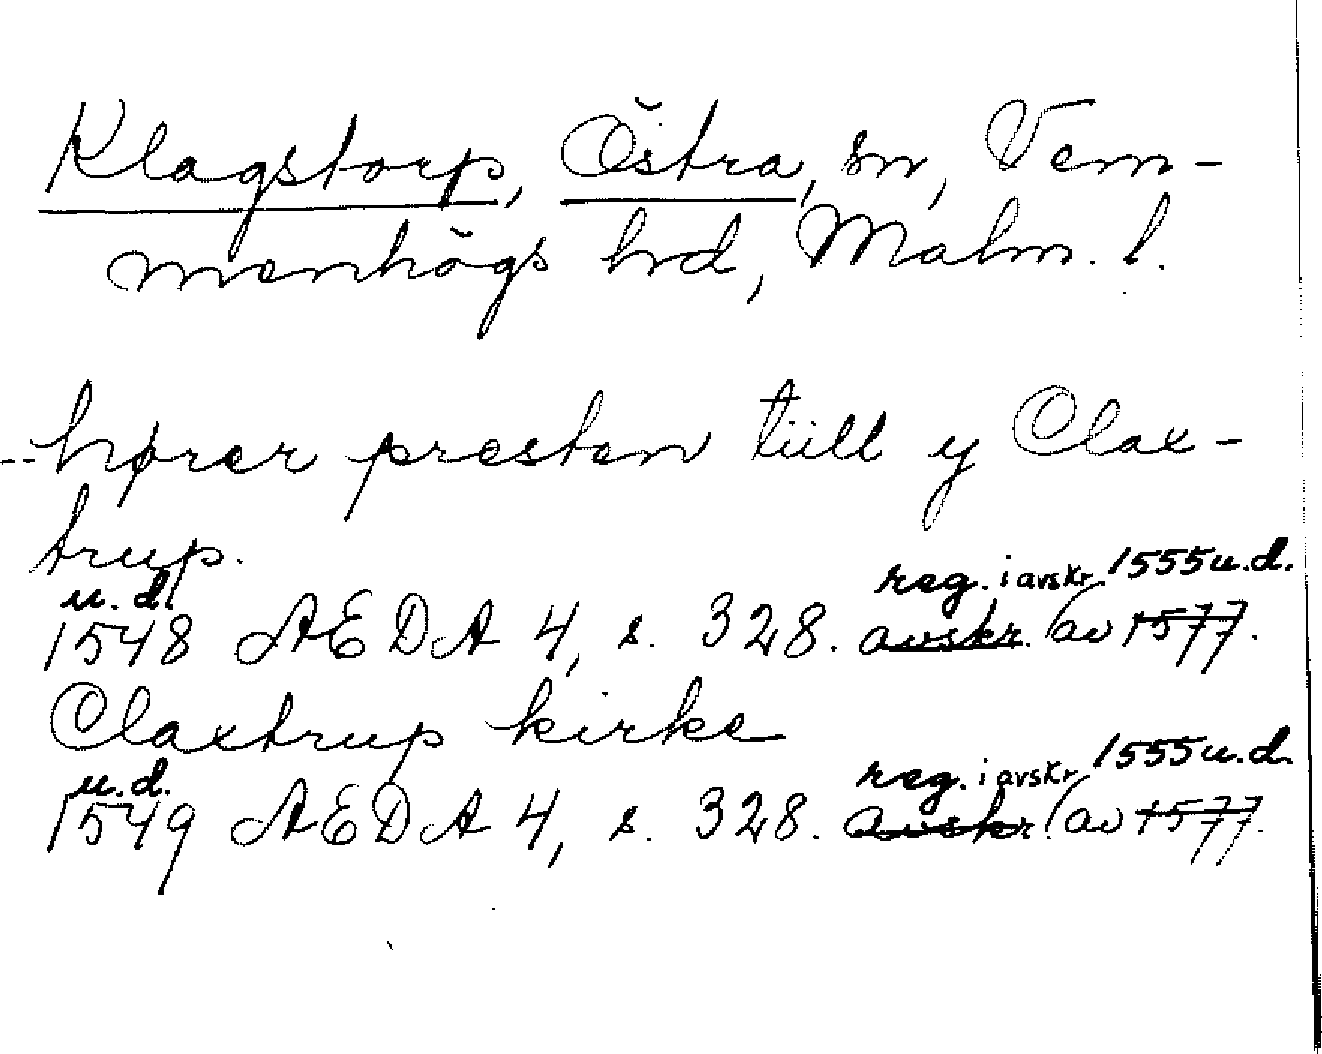 Klagstorp, Östra, sn, Vem-
menhögs hrd, Malm. l.
--hører presten tiill y Clax-
trup.
u. d. reg. i avskr. 1555 u.d.
1548 AEDA 4, s. 328. avskr. (av 1577.
Claxtrup kirke
u. d. reg. i avskr. 1555 u.d.
1549 AEDA 4, s. 328. avskr. (av 1577.